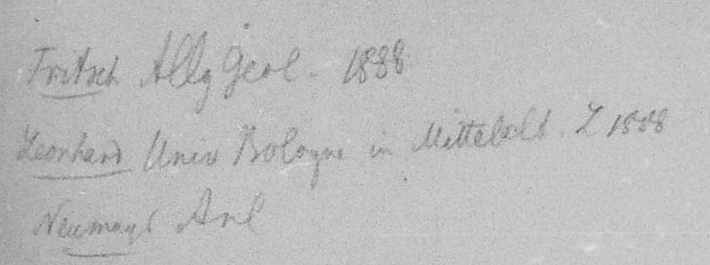 Fritsch Allg Geol. 1888
Leonhard Univ Bologna in Mittelalt. L 1888
Neumayr